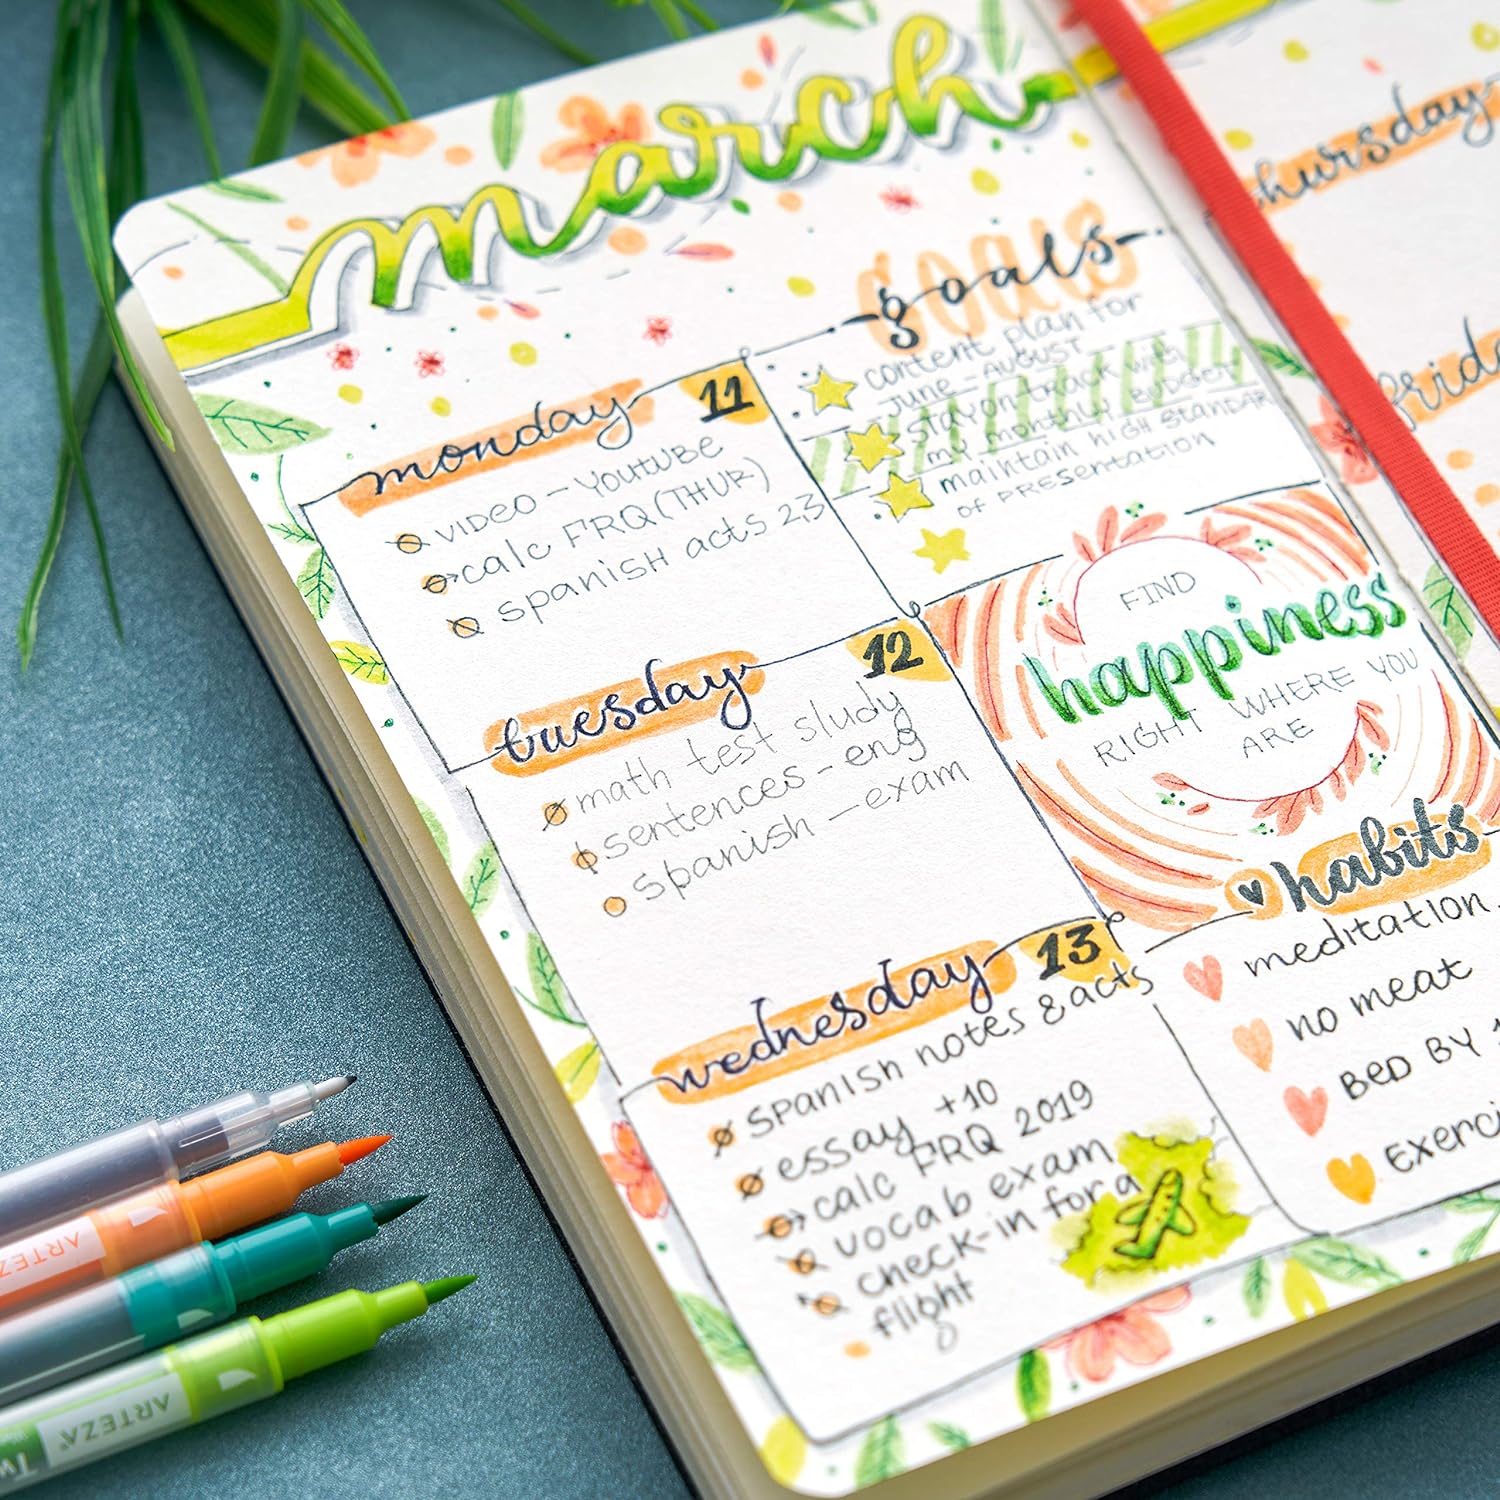 march
monday 11
video - YouTube
calc FRQ (THUR)
spanish acts 2,3
tuesday 12
math test study
sentences - eng
spanish - exam
wednesday 13
spanish notes & acts
essay +10
calc FRQ 2019
vocab exam
check-in for a
flight
goals
goals
content plan for
June - August
stay on track with
my monthly budget
maintain high standar
of presentation
FIND
happiness
RIGHT WHERE YOU
ARE
habits
meditation
no meat
BED BY
Exerci
thursday
frida
ARTEZA
ARTEZA
Tw